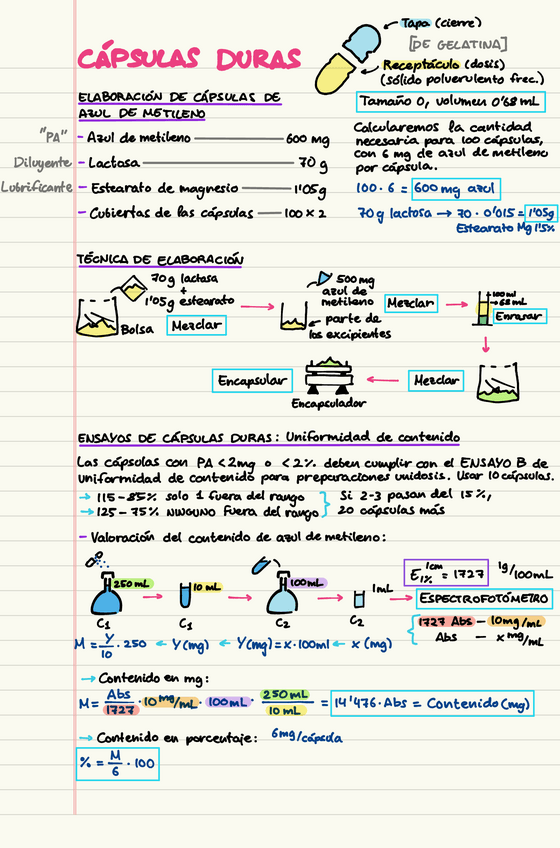 CÁPSULAS DURAS
Tapa (cierre)
[DE GELATINA]
Receptáculo (dosis)
(sólido polverulento frec.)
Tamaño 0, volumen 0'68 mL
ELABORACIÓN DE CÁPSULAS DE
AZUL DE METILENO
"PA" - Azul de metileno 600 mg
Diluyente - Lactosa 70 g
Lubrificante - Estearato de magnesio 1'05g
- Cubiertas de las cápsulas 100 x 2
Calcularemos la cantidad
necesaria para 100 cápsulas,
con 6 mg de azul de metileno
por cápsula.
100 · 6 = 600 mg azul
70g lactosa → 70 · 0'015 = 1'05g
Estearato Mg 1'5%
TÉCNICA DE ELABORACIÓN
70g lactosa
+
1'05g estearato
Bolsa
Mezclar
500 mg
azul de
metileno
parte de
los excipientes
Mezclar
100 ml
68 mL
Enrasar
Mezclar
Encapsular
Encapsulador
ENSAYOS DE CÁPSULAS DURAS: Uniformidad de contenido
Las cápsulas con PA <2mg o <2% deben cumplir con el ENSAYO B de
uniformidad de contenido para preparaciones unidosis. Usar 10 cápsulas.
→ 115-85% solo 1 fuera del rango
→ 125-75% NINGUNO Fuera del rango
Si 2-3 pasan del 15%,
20 cápsulas más
- Valoración del contenido de azul de metileno:
250 mL
C1
10 mL
C1
100mL
C2
1mL
C2
E 1cm 1% = 1727 1g/100mL
ESPECTROFOTÓMETRO
1727 Abs - 10mg/mL
Abs - x mg/mL
M = Y/10 · 250 ← Y(mg) ← Y(mg) = x·100ml ← x (mg)
→ Contenido en mg:
M = Abs/1727 · 10 mg/mL · 100mL · 250 mL/10 mL = 14'476 · Abs = Contenido (mg)
→ Contenido en porcentaje: 6mg/cápsula
% = M/6 · 100